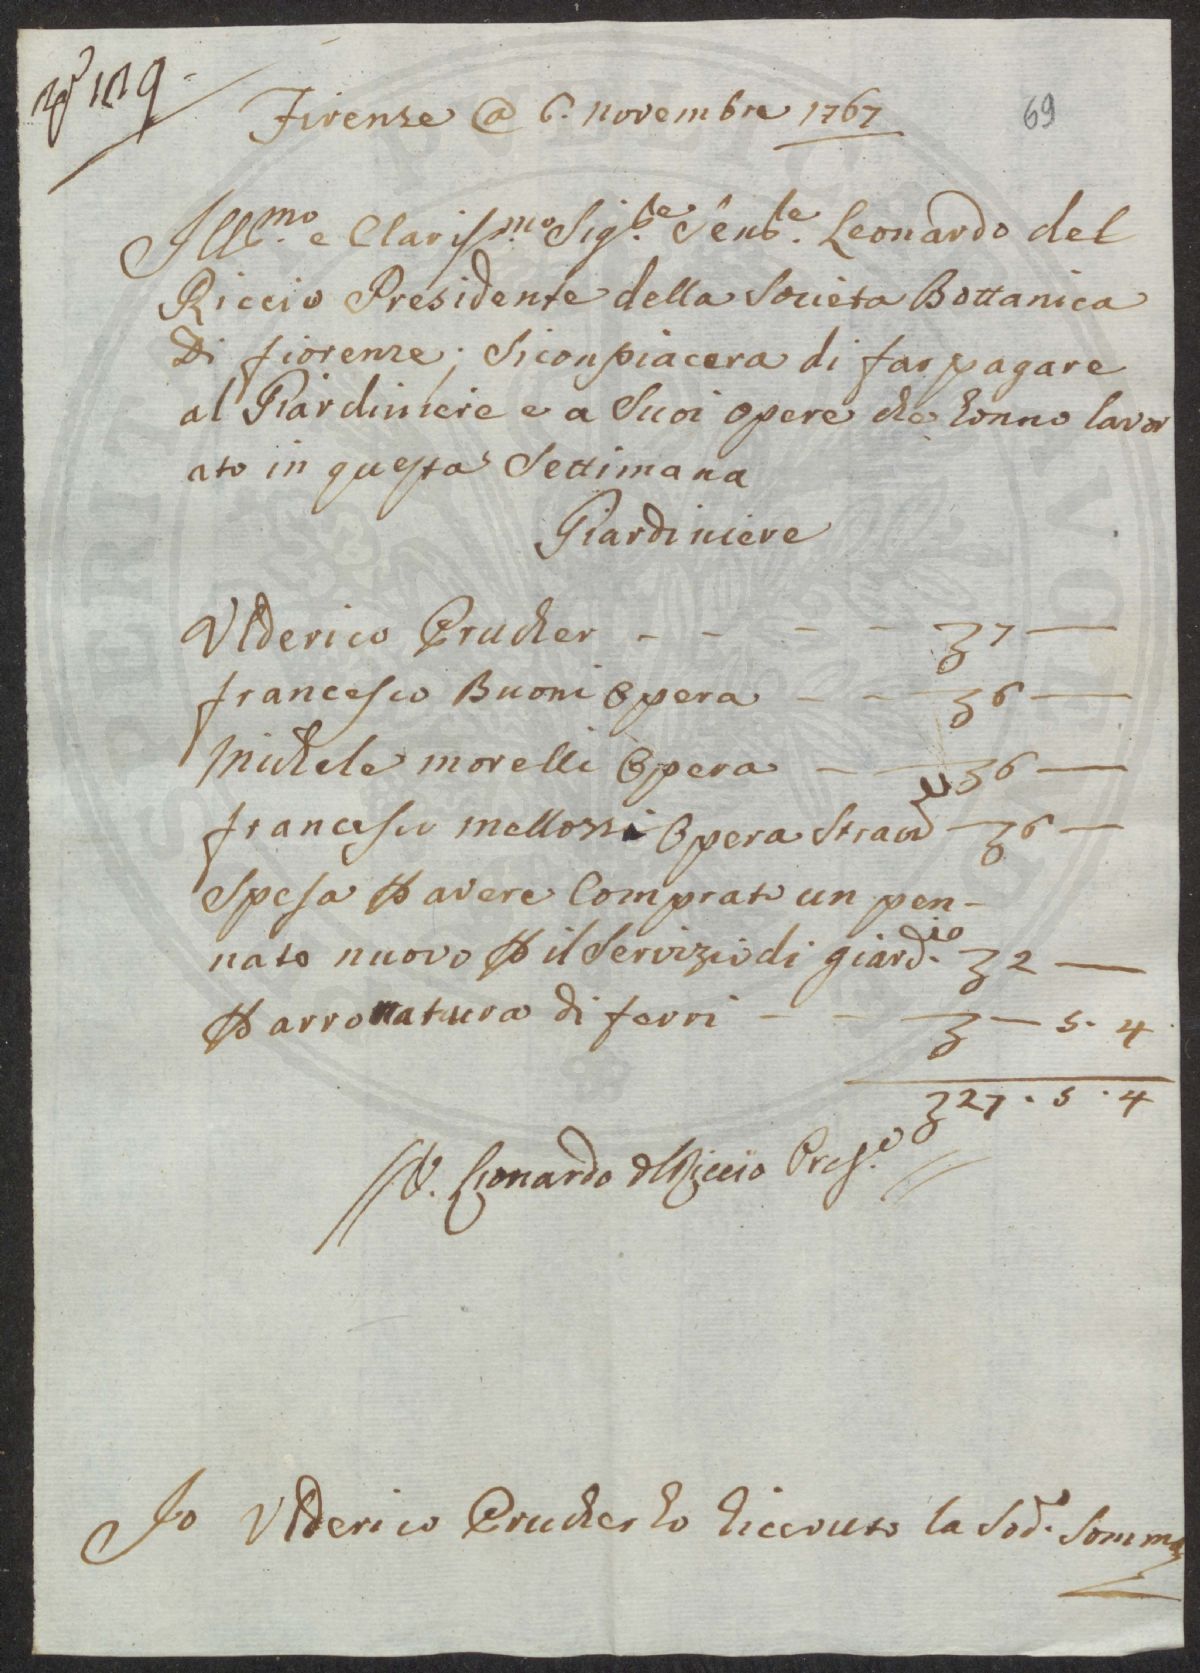 N° 129.
69
Firenze @ 6. novembre 1767
Ill.mo e Clariss.mo Sig.re Senb.le Leonardo del
Riccio Presidente della Società Bottanica
Di fiorenze; Siconpiacera di far pagare
al Giardiniere e a Suoi opere che honno lavor
ato in questa Settimana
Giardiniere
Vlderico Prucher - - - - ʒ 7 —
francesco Buoni Opera - - ʒ 6 —
Michele morelli Opera - - ʒ 6 —
francesco mellozzi Opera Straor.d ʒ 6 —
Spesa ꝑ avere Comprato un pen-
nato nuovo ꝑ il Servizio di giard.io ʒ 2 —
ꝑ arrotatura di ferri - - ʒ — 5. 4
ʒ 27. 5. 4
Leonardo del Riccio Pres.e
Io Vlderico Prucher ho Riceouto la Sod.a Somma
PVBLICA